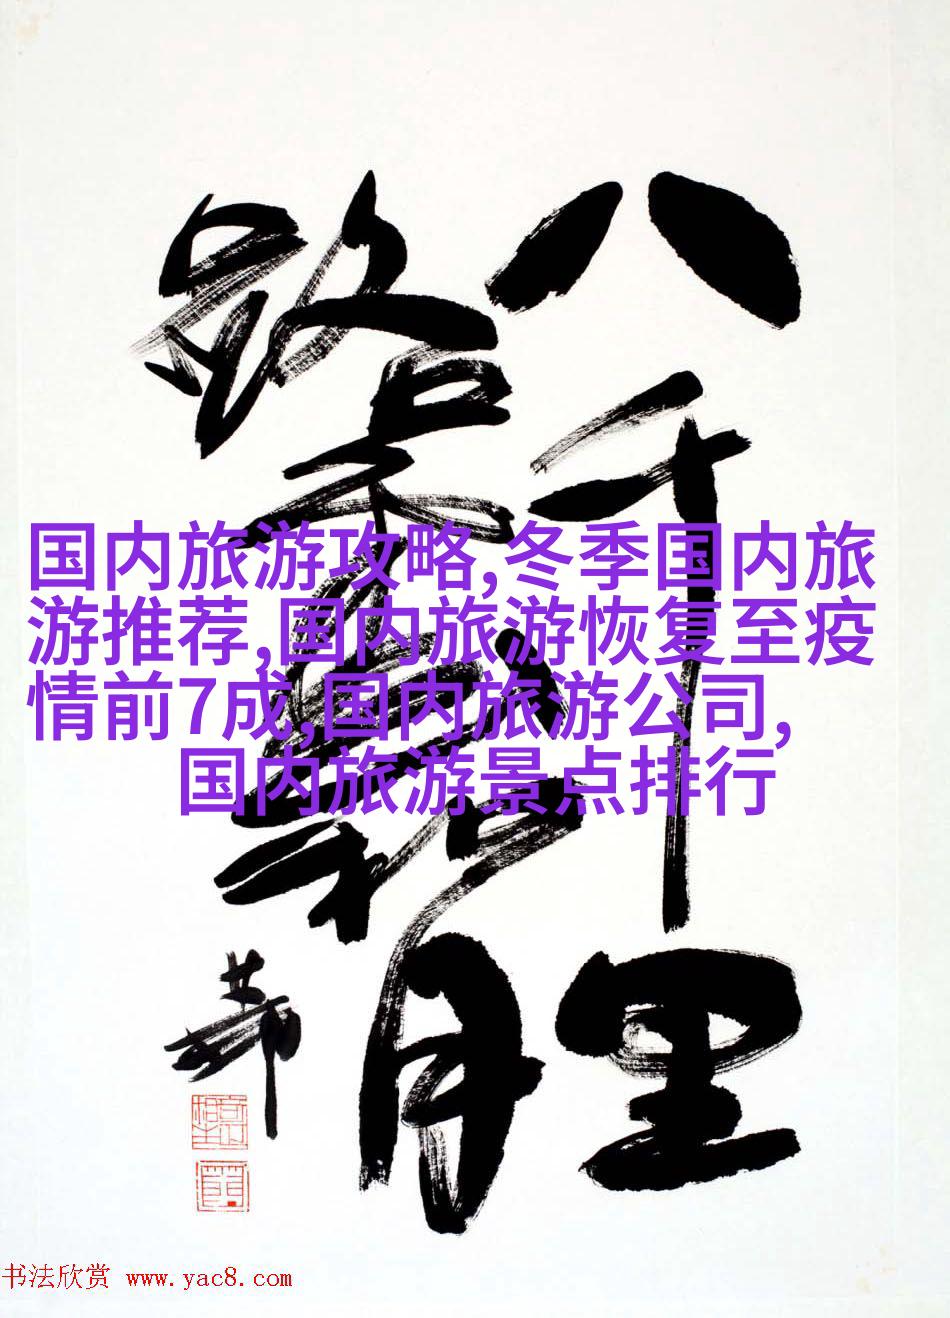 八千里
路云和月
国内旅游攻略,冬季国内旅
游推荐,国内旅游恢复至疫
情前7成,国内旅游公司,
国内旅游景点排行
书法欣赏 www.yac8.com